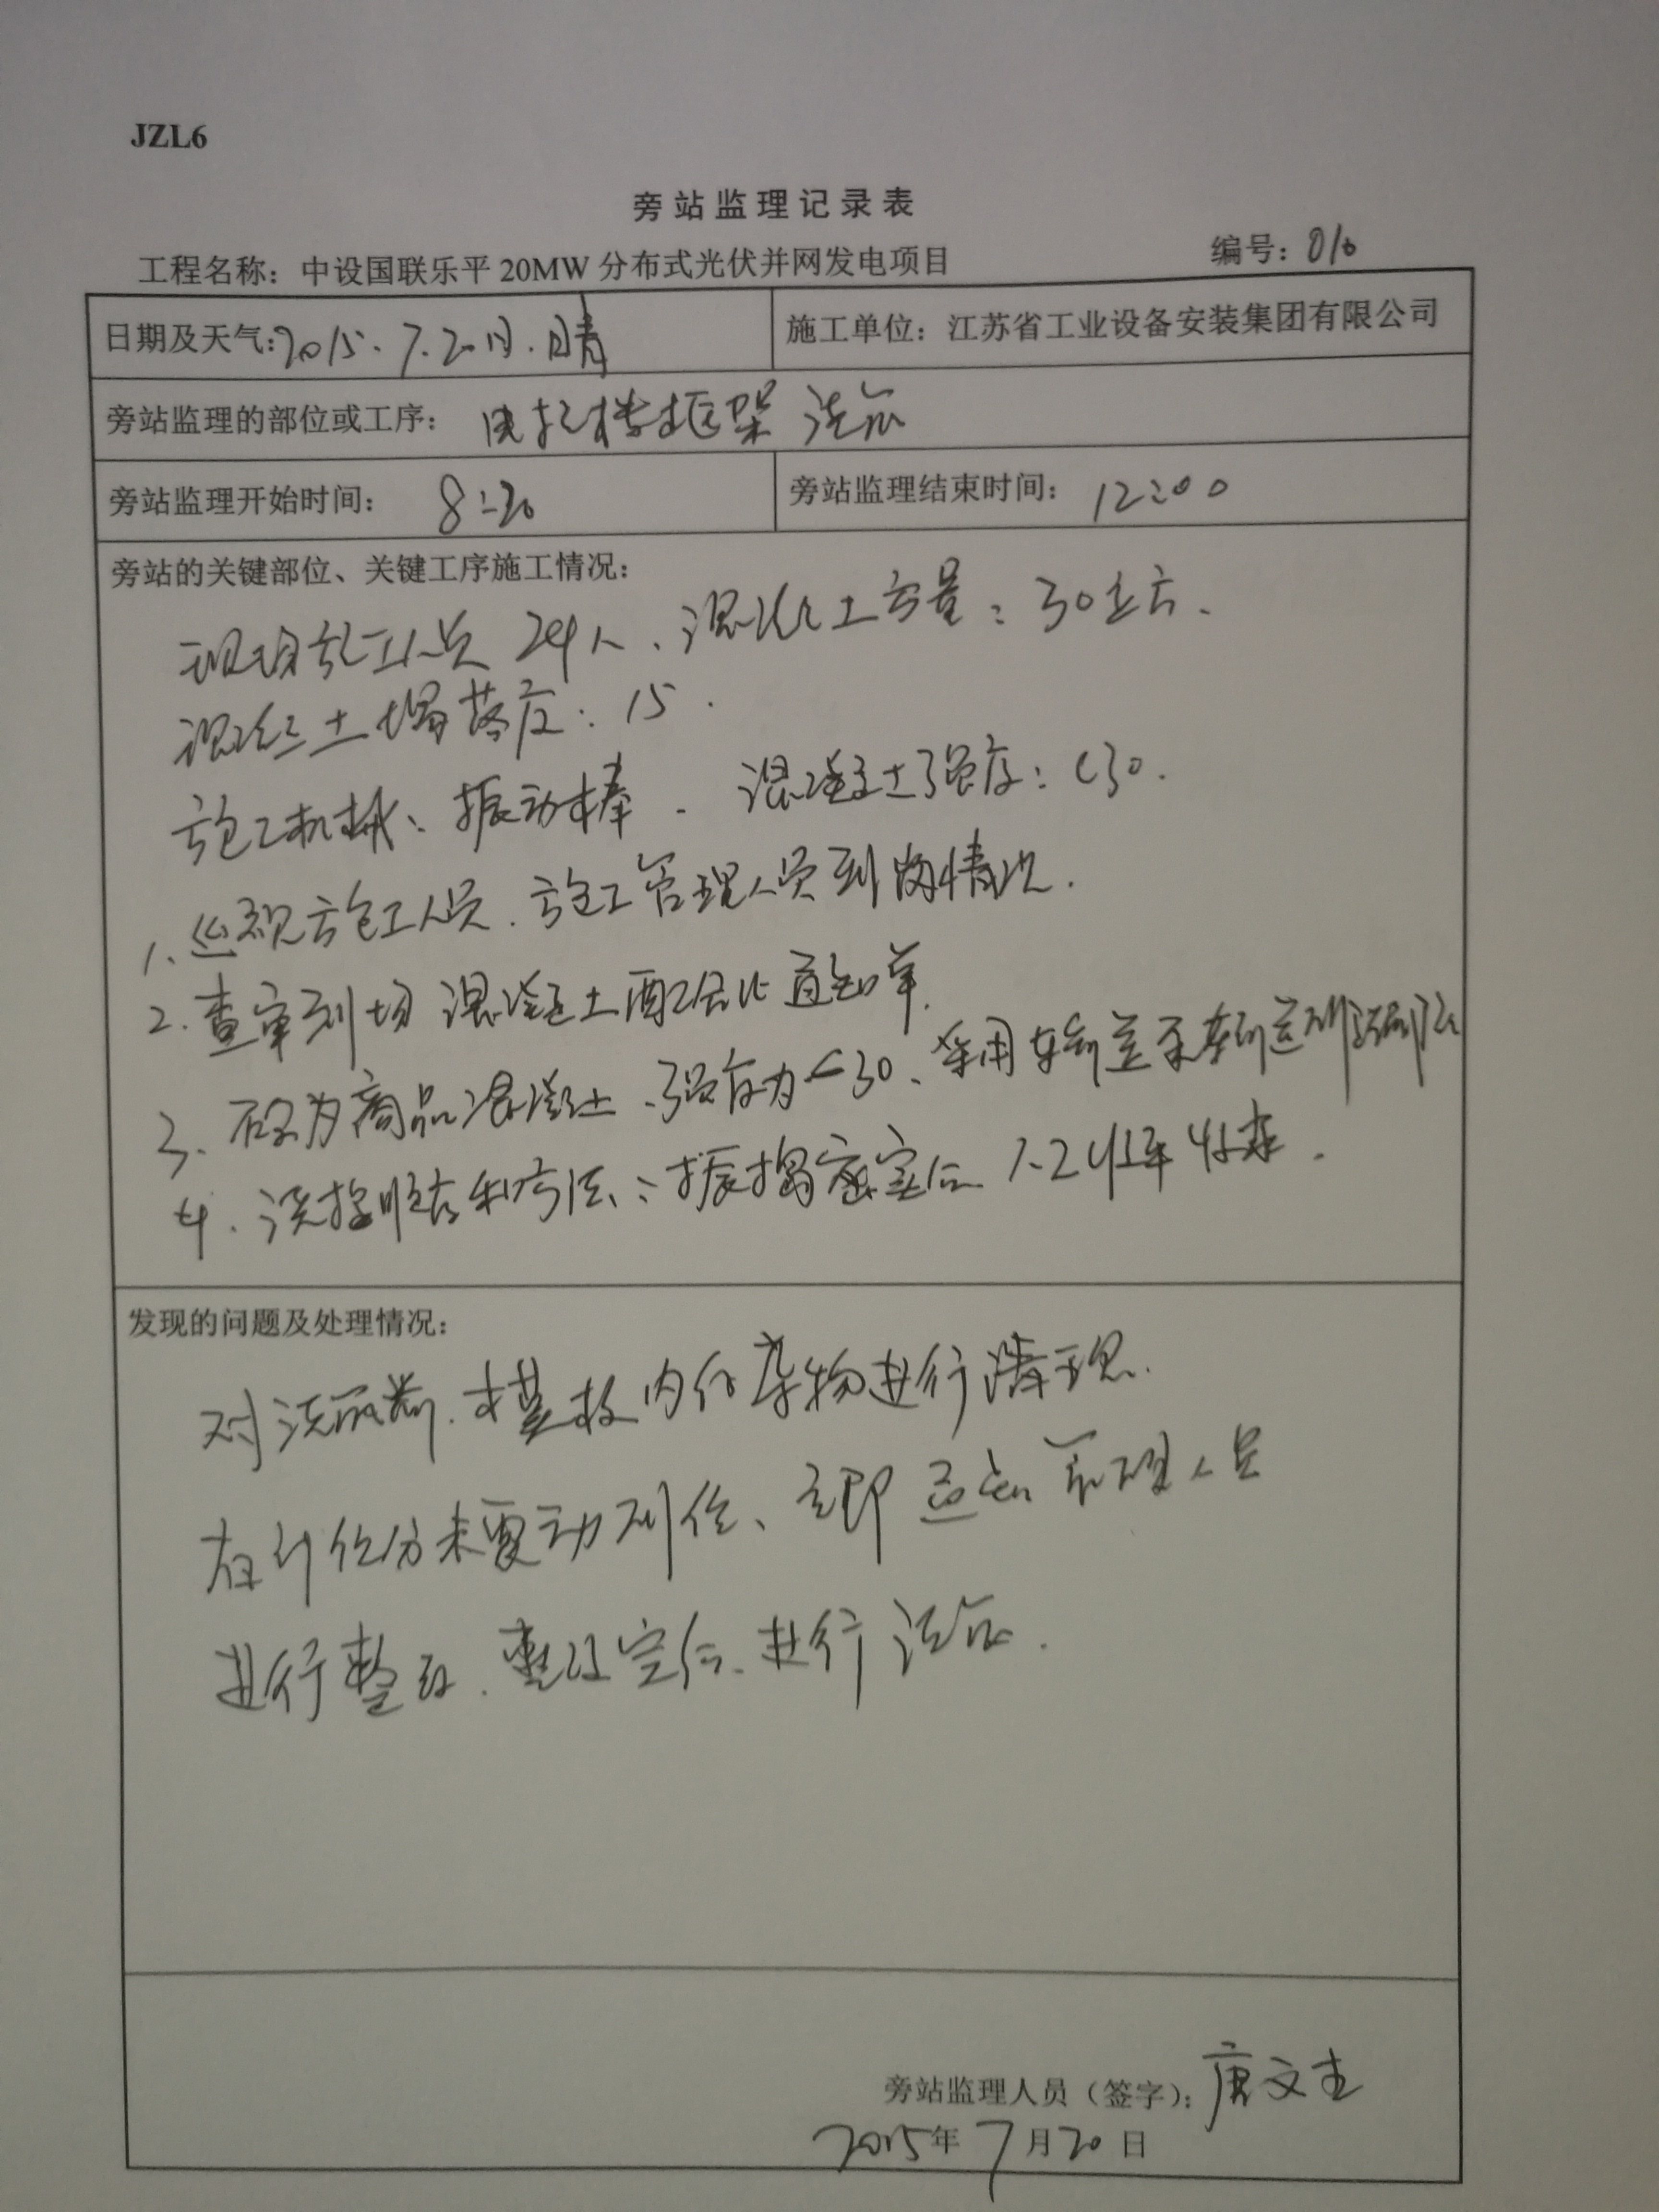 JZL6
旁站监理记录表
工程名称：中设国联乐平20MW分布式光伏并网发电项目 编号：010
日期及天气：2015.7.20日.晴 施工单位：江苏省工业设备安装集团有限公司
旁站监理的部位或工序： 框架浇筑
旁站监理开始时间： 8:30 旁站监理结束时间： 12:00
旁站的关键部位、关键工序施工情况：
现场施工人员24人、混凝土方量：30立方、
混凝土塌落度：15.
施工机械：振动棒. 混凝土强度：C30.
1、巡视施工人员.施工管理人员到岗情况.
2.查审到场混凝土配合比通知单.
3、 为商品混凝土、强度为C30、采用
4.浇捣顺序和方法：振捣密实后
发现的问题及处理情况：
对浇筑 .模板内的杂物进行清理.
有 部分未震动到位、立即通知管理人员
进行整改.整改完后.进行浇筑.
旁站监理人员（签字）：唐文
2015年7月20日